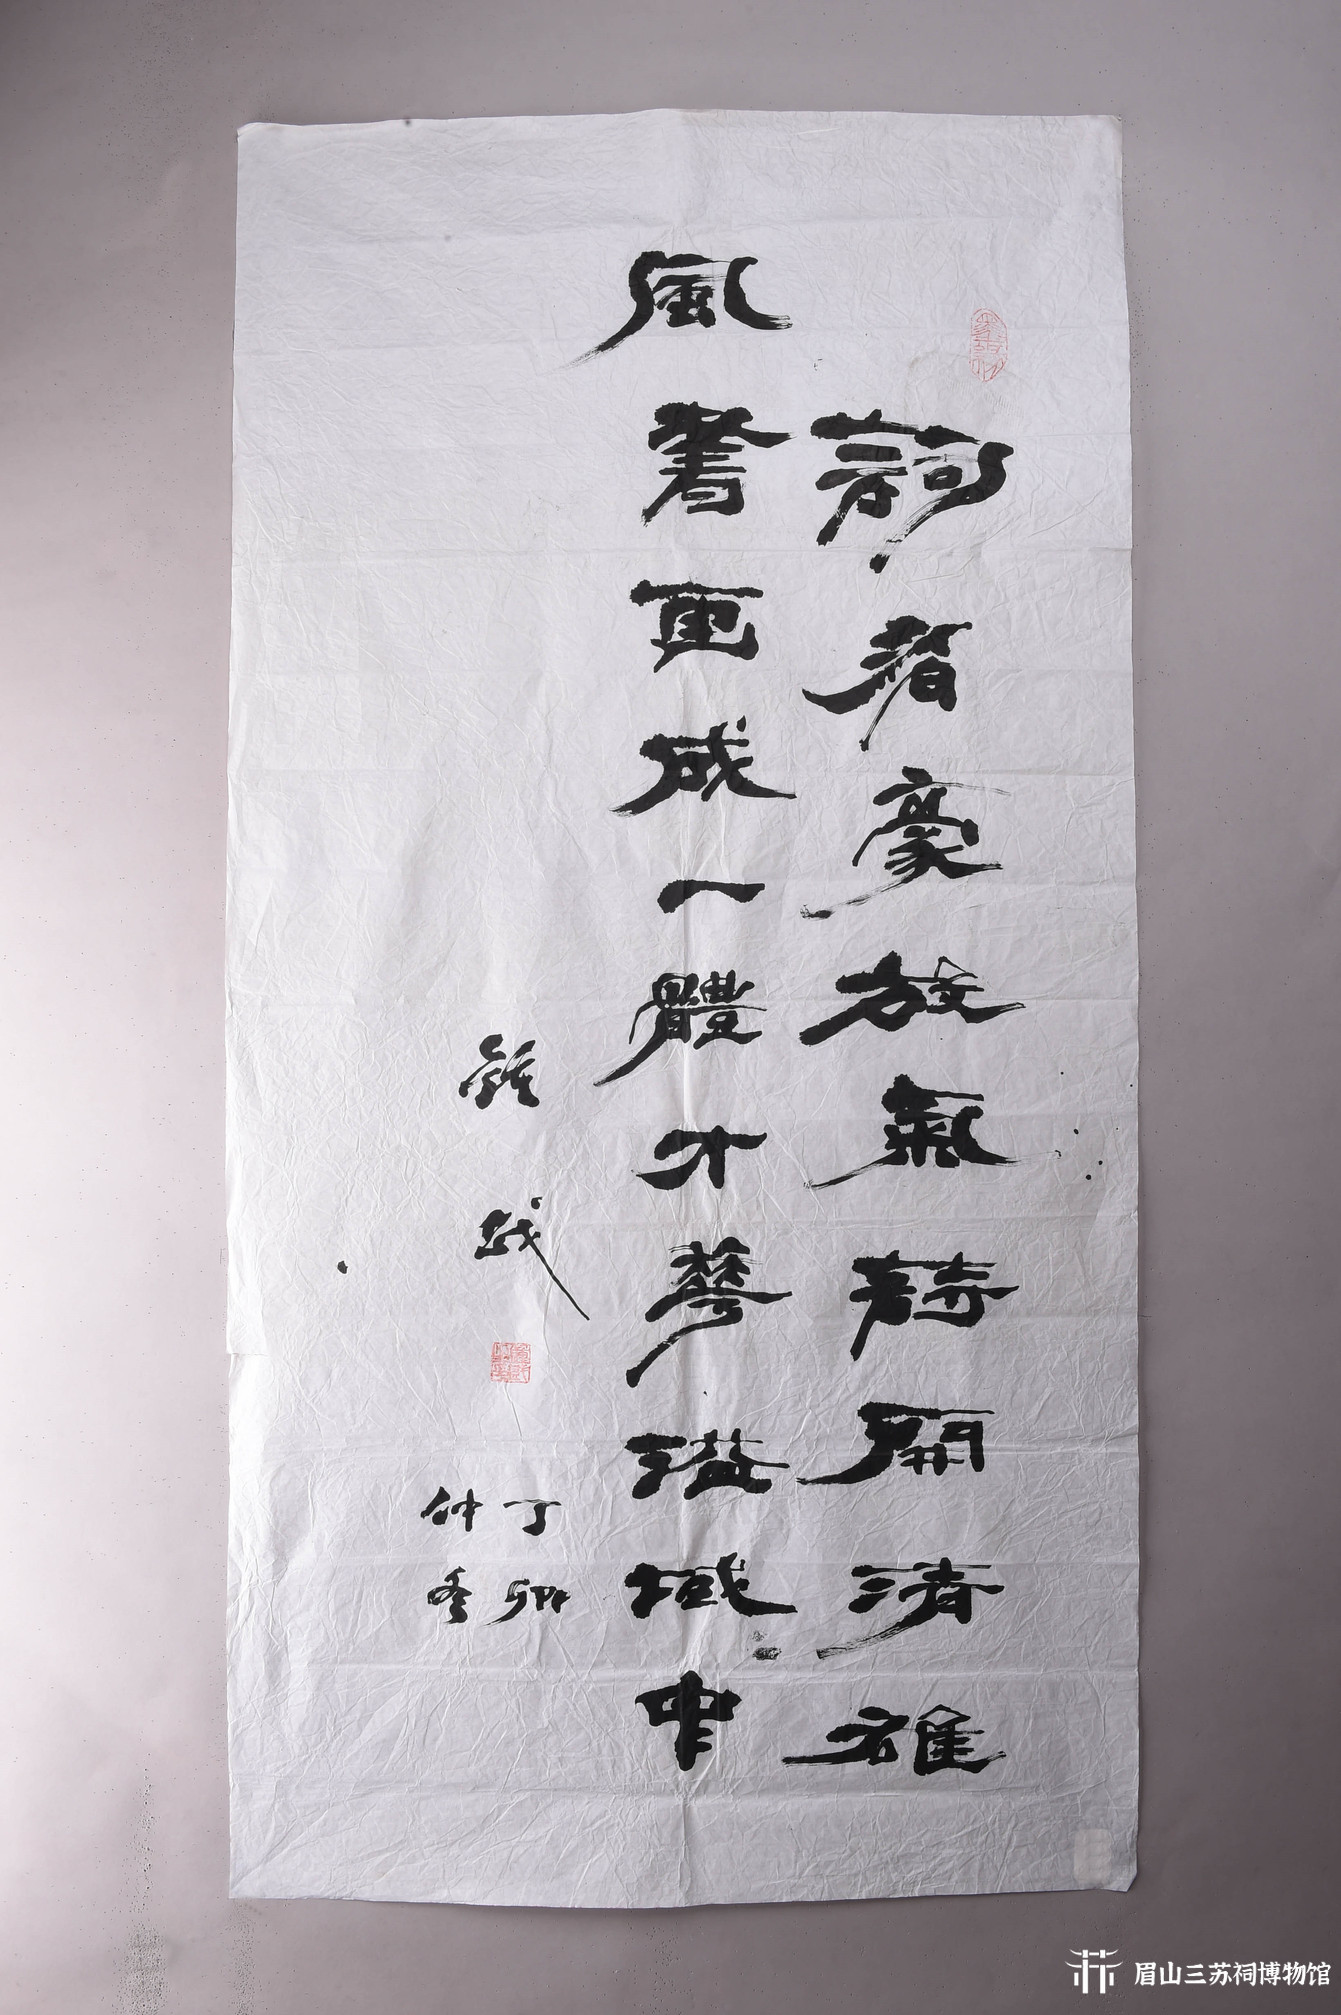 詞者豪放氣詩開清雄
風書更成一體才華溢域中
丁卯
仲冬
眉山三苏祠博物馆